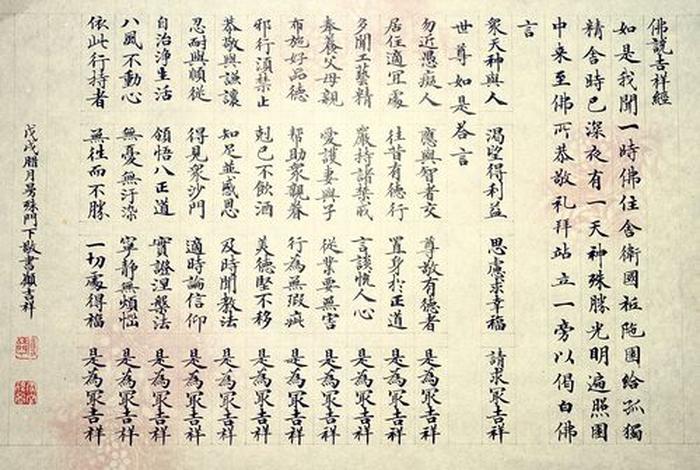 佛說吉祥經
如是我聞一時佛住舍衛國祗陁園給孤獨
精舍時已深夜有一天神殊勝光明遍照園
中來至佛所恭敬礼拜站立一旁以偈白佛
言
眾天神與人 渴望得利益 思慮求幸福 請求冣吉祥
世尊如是答言
勿近愚癡人 應與智者交 尊敬有德者 是為冣吉祥
居住適宜處 往昔有德行 置身於正道 是為冣吉祥
多聞工藝精 嚴持諸禁戒 言談悅人心 是為冣吉祥
奉養父母親 愛護妻與子 從業要無害 是為冣吉祥
布施好品德 幫助眾親眷 行為無瑕疵 是為冣吉祥
邪行須禁止 剋己不飲酒 美德堅不移 是為冣吉祥
恭敬與謙讓 知足並感恩 及時聞教法 是為冣吉祥
忍耐與順從 得見眾沙門 適時論信仰 是為冣吉祥
自治淨生活 領悟八正道 實證涅槃法 是為冣吉祥
八風不動心 無憂無汙染 寧靜無煩惱 是為冣吉祥
依此行持者 無往而不勝 一切處得福 是為冣吉祥
戊戌腊月昜殊門下敬書願吉祥